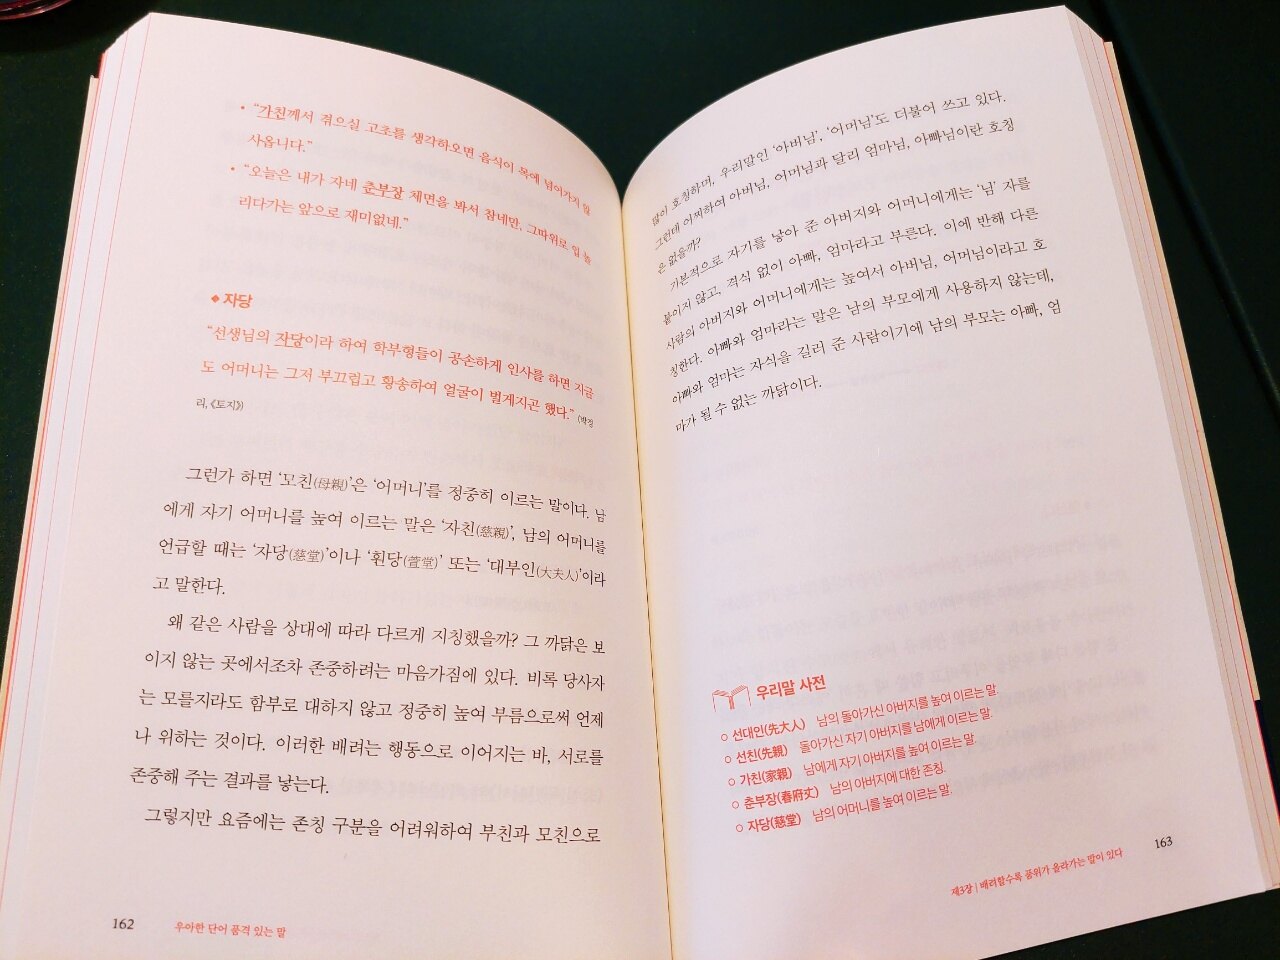 • “가친께서 겪으실 고초를 생각하오면 음식이 목에 넘어가지 않
사옵니다.”
• “오늘은 내가 자네 춘부장 체면을 봐서 참네만, 그따위로 입 놀
리다가는 앞으로 재미없네.”
◆ 자당
“선생님의 자당이라 하여 학부형들이 공손하게 인사를 하면 지금
도 어머니는 그저 부끄럽고 황송하여 얼굴이 벌게지곤 했다.” (박경
리, 《토지》)
그런가 하면 ‘모친(母親)’은 ‘어머니’를 정중히 이르는 말이다. 남
에게 자기 어머니를 높여 이르는 말은 ‘자친(慈親)’, 남의 어머니를
언급할 때는 ‘자당(慈堂)’이나 ‘훤당(萱堂)’ 또는 ‘대부인(大夫人)’이라
고 말한다.
왜 같은 사람을 상대에 따라 다르게 지칭했을까? 그 까닭은 보
이지 않는 곳에서조차 존중하려는 마음가짐에 있다. 비록 당사자
는 모를지라도 함부로 대하지 않고 정중히 높여 부름으로써 언제
나 위하는 것이다. 이러한 배려는 행동으로 이어지는 바, 서로를
존중해 주는 결과를 낳는다.
그렇지만 요즘에는 존칭 구분을 어려워하여 부친과 모친으로
162 우아한 단어 품격 있는 말
많이 호칭하며, 우리말인 ‘아버님’, ‘어머님’도 더불어 쓰고 있다.
그런데 어찌하여 아버님, 어머님과 달리 엄마님, 아빠님이란 호칭
은 없을까?
기본적으로 자기를 낳아 준 아버지와 어머니에게는 ‘님’ 자를
붙이지 않고, 격식 없이 아빠, 엄마라고 부른다. 이에 반해 다른
사람의 아버지와 어머니에게는 높여서 아버님, 어머님이라고 호
칭한다. 아빠와 엄마라는 말은 남의 부모에게 사용하지 않는데,
아빠와 엄마는 자식을 길러 준 사람이기에 남의 부모는 아빠, 엄
마가 될 수 없는 까닭이다.
우리말 사전
○ 선대인(先大人) 남의 돌아가신 아버지를 높여 이르는 말.
○ 선친(先親) 돌아가신 자기 아버지를 남에게 이르는 말.
○ 가친(家親) 남에게 자기 아버지를 높여 이르는 말.
○ 춘부장(春府丈) 남의 아버지에 대한 존칭.
○ 자당(慈堂) 남의 어머니를 높여 이르는 말.
제3장 | 배려할수록 품위가 올라가는 말이 있다 163